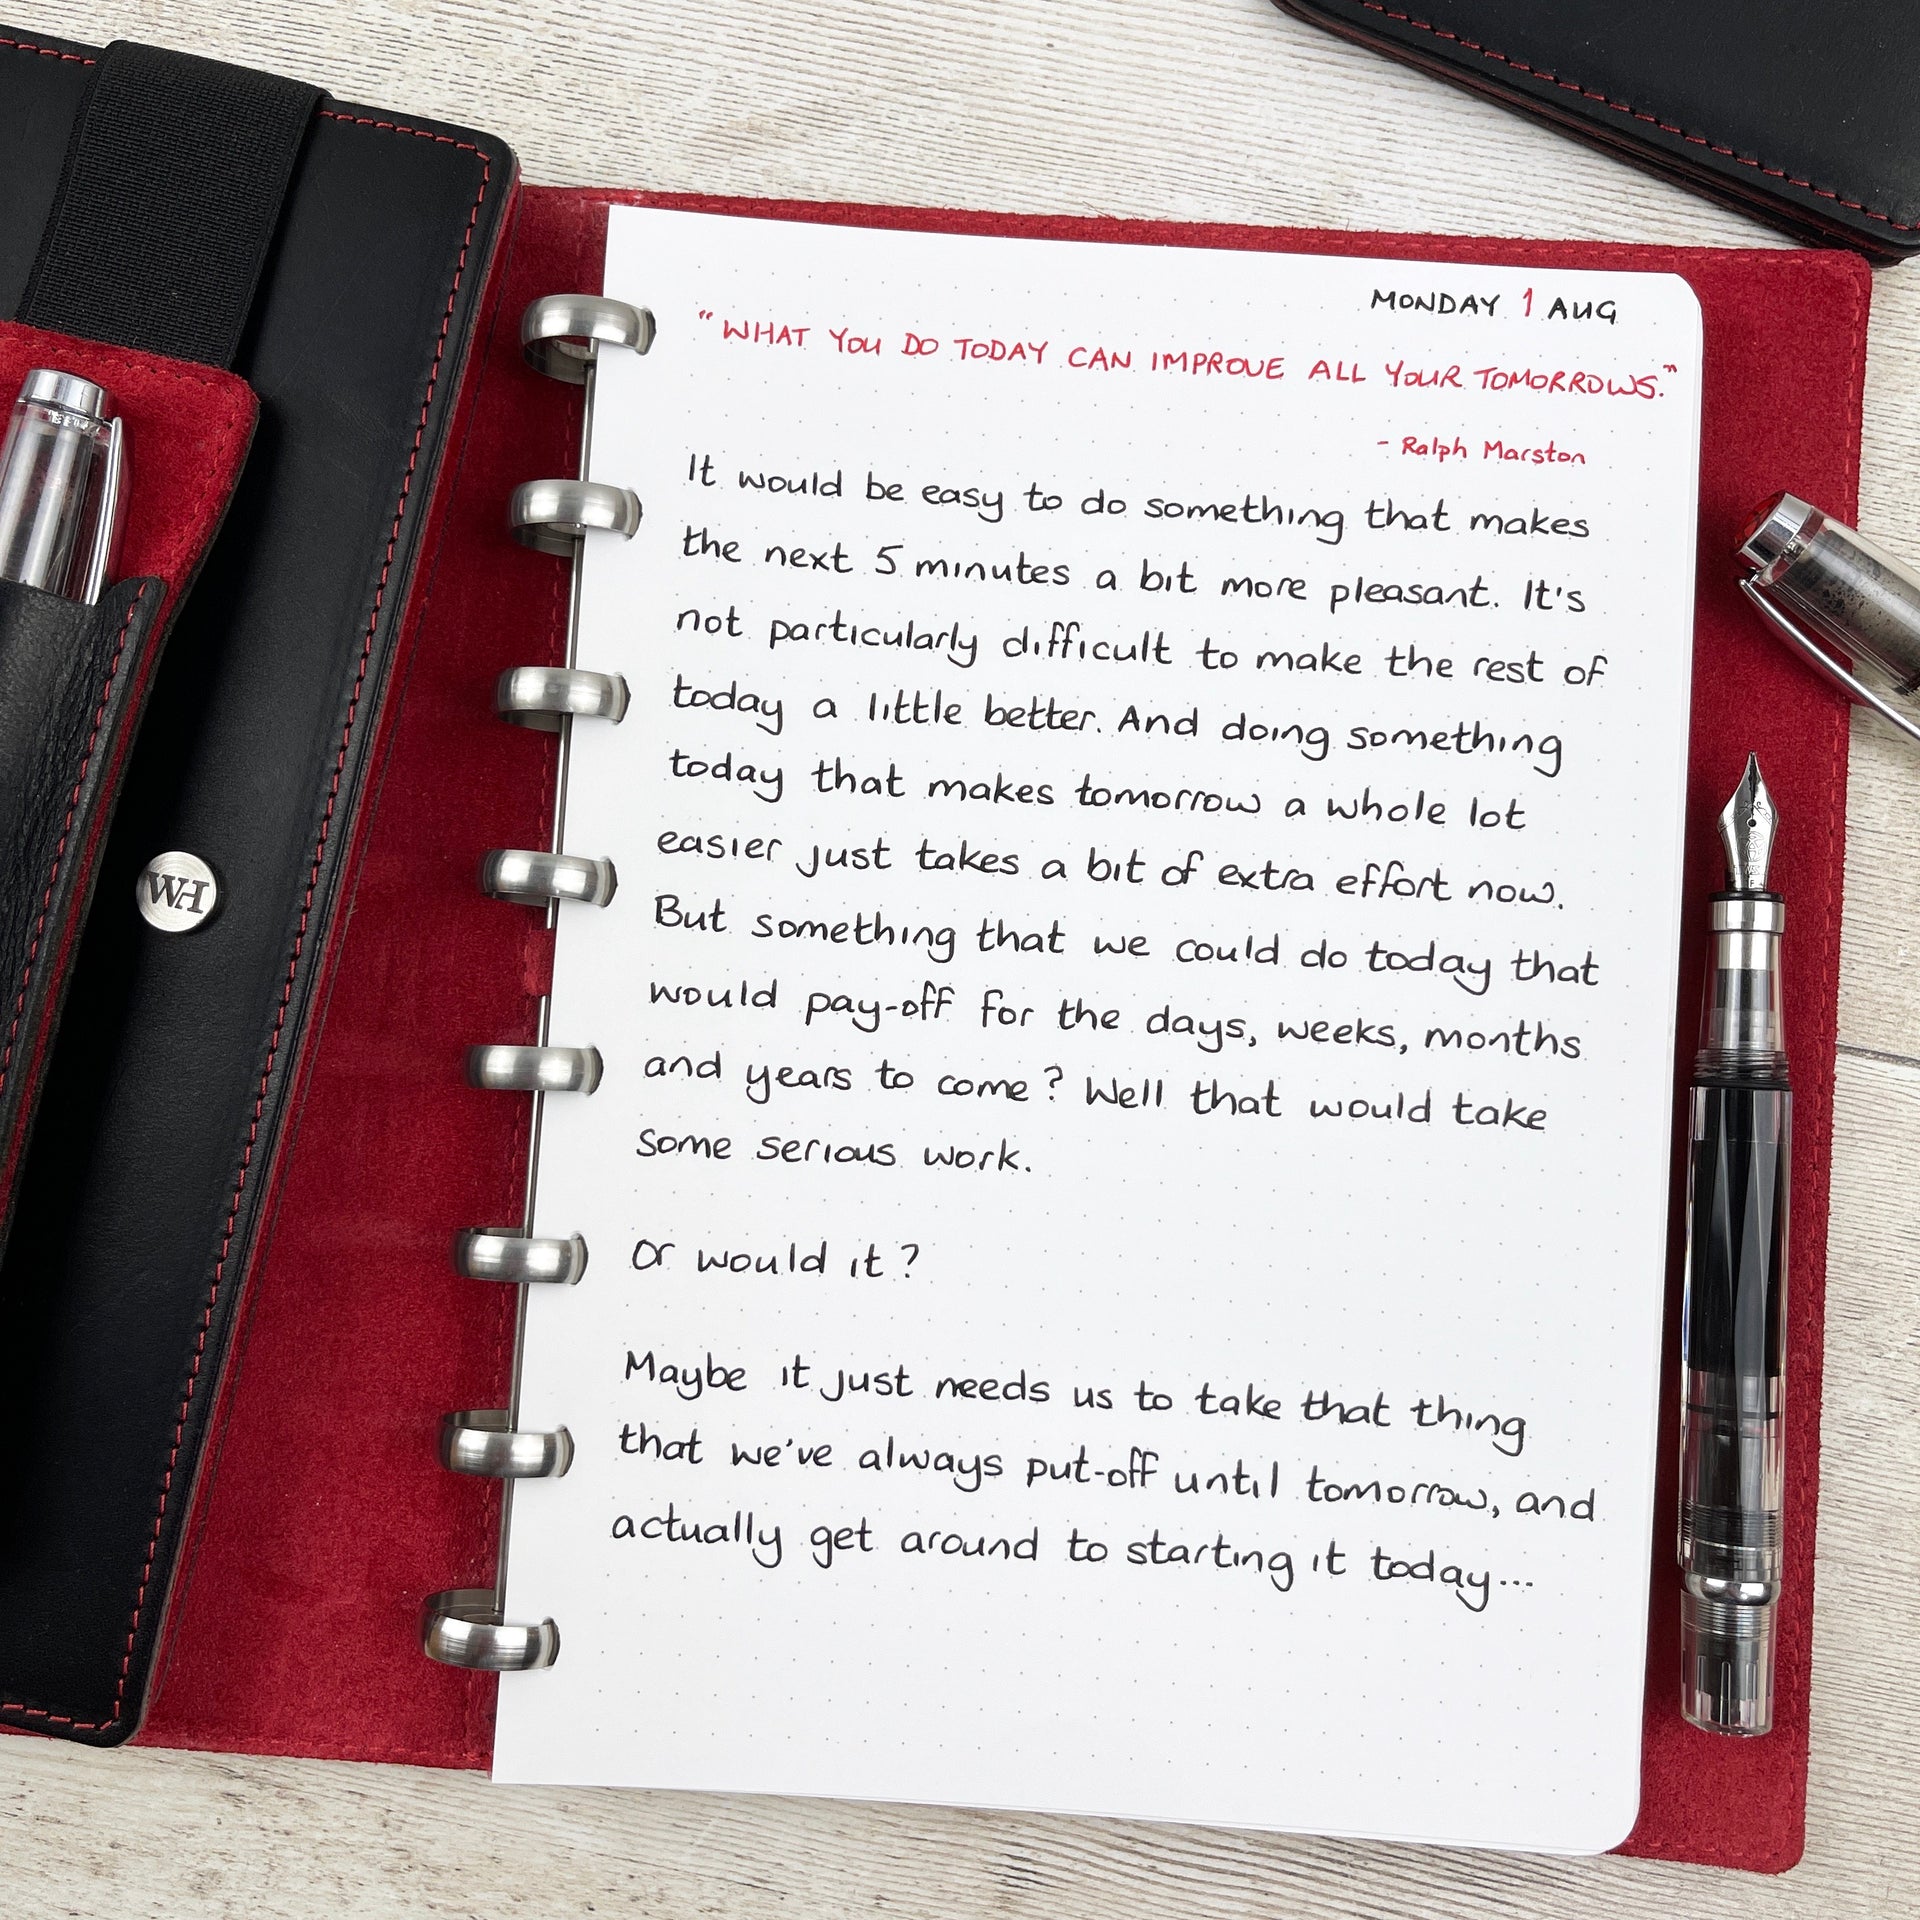 MONDAY 1 AUG
"WHAT YOU DO TODAY CAN IMPROVE ALL YOUR TOMORROWS."
- Ralph Marston
It would be easy to do something that makes
the next 5 minutes a bit more pleasant. It's
not particularly difficult to make the rest of
today a little better. And doing something
today that makes tomorrow a whole lot
easier just takes a bit of extra effort now.
But something that we could do today that
would pay-off for the days, weeks, months
and years to come? Well that would take
some serious work.
Or would it?
Maybe it just needs us to take that thing
that we've always put-off until tomorrow, and
actually get around to starting it today...
WH